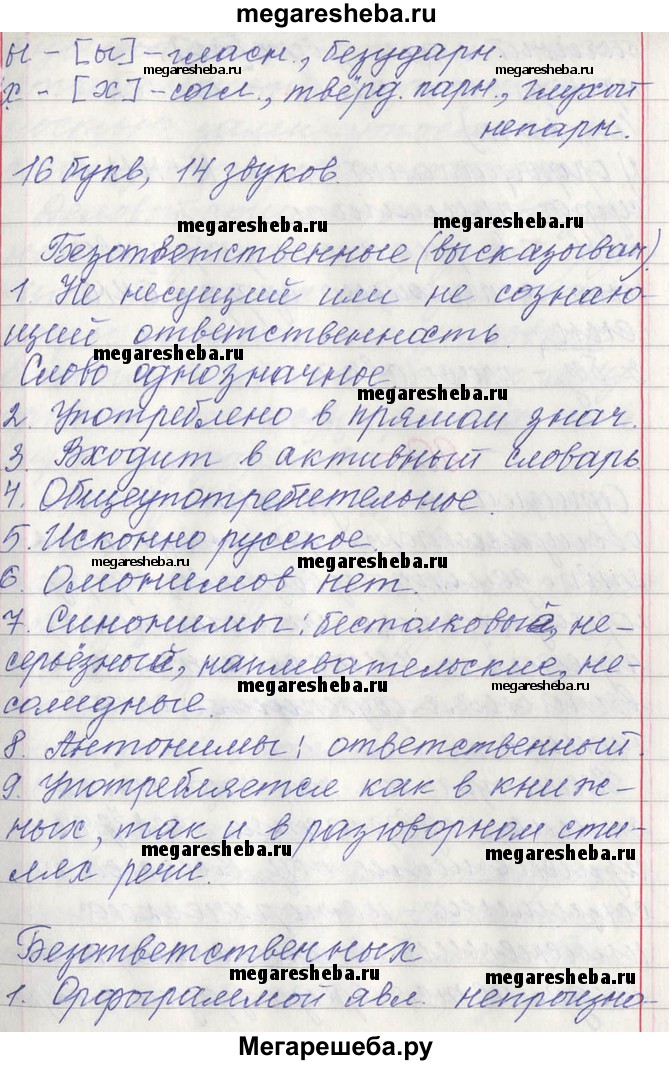 megaresheba.ru
ы – [ы] – гласн., безударн.
megaresheba.ru megaresheba.ru
х – [х] – согл., твёрд. парн., глухой
непарн.
16 букв, 14 звуков.
megaresheba.ru megaresheba.ru
Безответственные (высказыван.)
1. Не несущий или не сознаю-
щий ответственность.
megaresheba.ru
Слово однозначное.
megaresheba.ru
2. Употреблено в прямом знач.
3. Входит в активный словарь.
4. Общеупотребительное.
5. Исконно русское.
megaresheba.ru megaresheba.ru
6. Омонимов нет.
7. Синонимы: бестолковый, не-
серьёзный, наплевательские, не-
megaresheba.ru megaresheba.ru
солидные.
8. Антонимы: ответственный.
9. Употребляется как в книж-
ных, так и в разговорном сти-
megaresheba.ru megaresheba.ru
лях речи.
Безответственных
megaresheba.ru megaresheba.ru
1. Орфограммой явл. непроизно-
Мегарешеба.ру